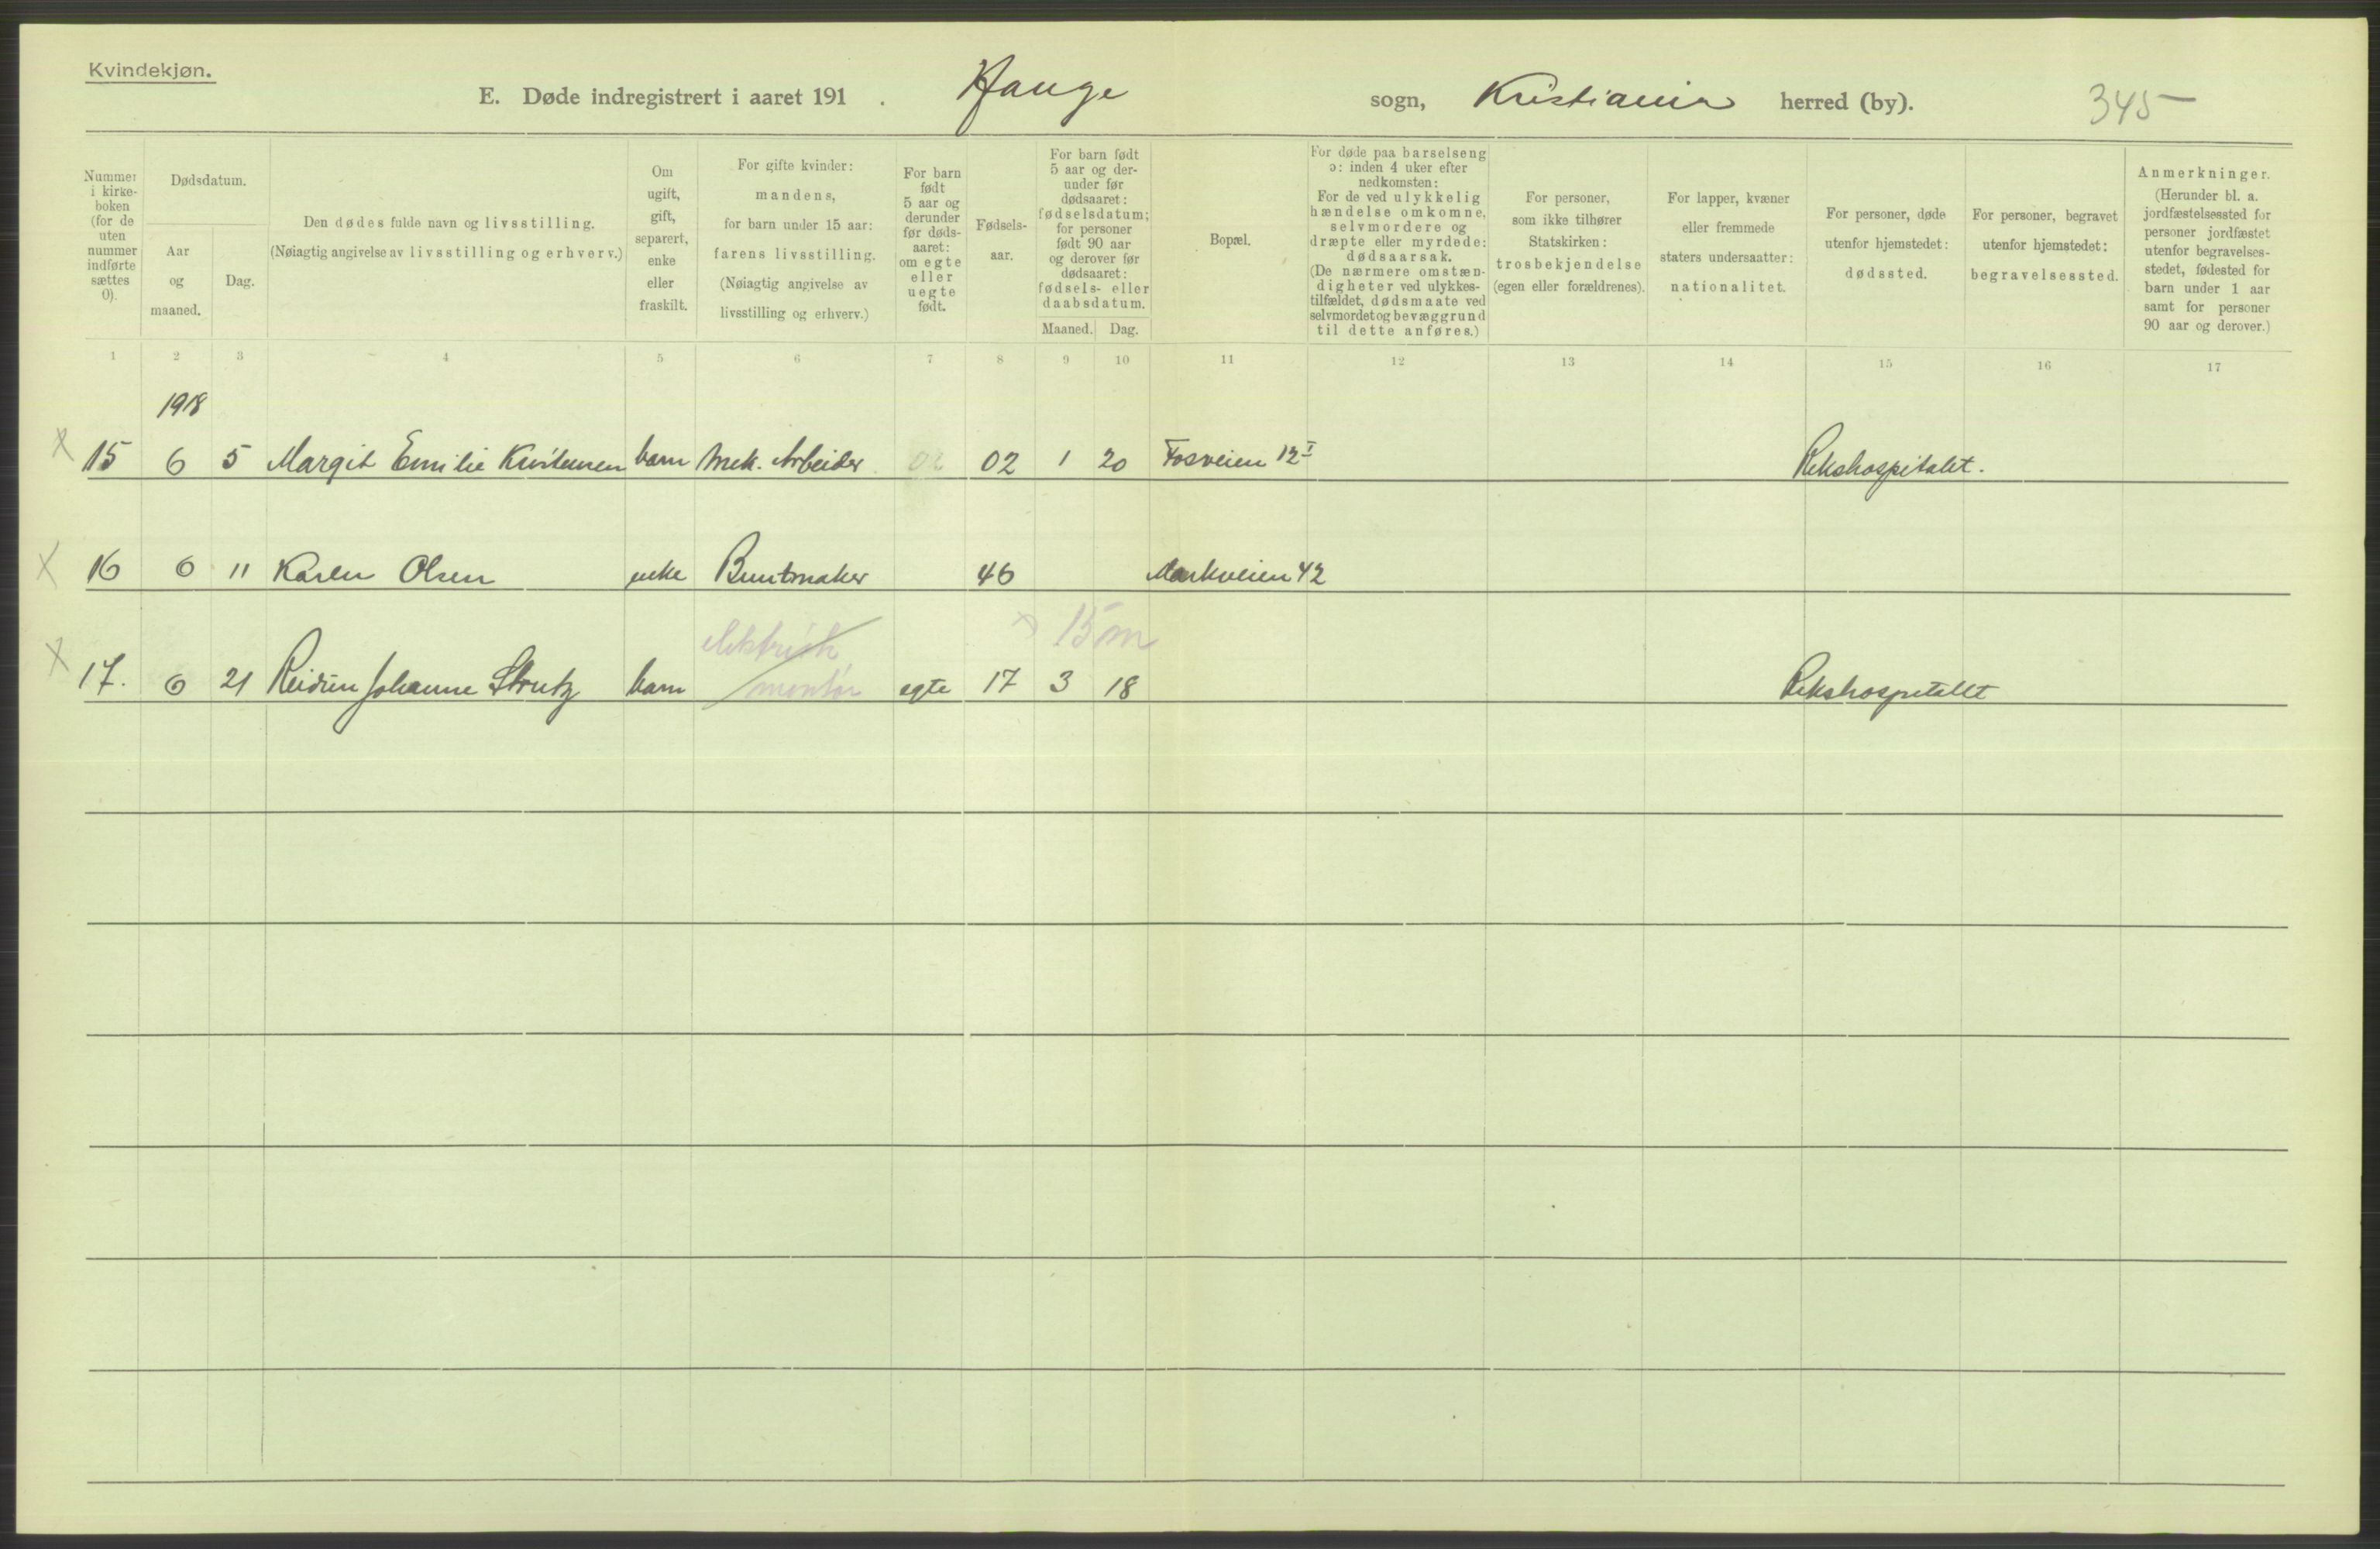 Kvindekjøn.
E. Døde indregistrert i aaret 191 . Hauge sogn, Kristiania herred (by). 345
Nummer i kirke-boken (for de uten nummer indførte sættes 0).
Dødsdatum.
Aar og maaned.
Dag.
Den dødes fulde navn og livsstilling.
(Nøiagtig angivelse av livsstilling og erhverv.)
Om ugift, gift, separert, enke eller fraskilt.
For gifte kvinder:
mandens,
for barn under 15 aar:
farens livsstilling.
(Nøiagtig angivelse av
livsstilling og erhverv.)
For barn født 5 aar og derunder før døds-aaret: om egte eller uegte født.
Fødsels-aar.
For barn født 5 aar og der-under før dødsaaret: fødselsdatum; for personer født 90 aar og derover før dødsaaret: fødsels- eller daabsdatum.
Maaned. Dag.
Bopæl.
For døde paa barselseng ɔ: inden 4 uker efter nedkomsten: For de ved ulykkelig hændelse omkomne, selvmordere og dræpte eller myrdede: dødsaarsak. (De nærmere omstæn-digheter ved ulykkes-tilfældet, dødsmaate ved selvmordet og bevæggrund til dette anføres.)
For personer, som ikke tilhører Statskirken: trosbekjendelse (egen eller forældrenes).
For lapper, kvæner eller fremmede staters undersaatter: nationalitet.
For personer, døde utenfor hjemstedet: dødssted.
For personer, begravet utenfor hjemstedet: begravelsessted.
Anmerkninger. (Herunder bl. a. jordfæstelsessted for personer jordfæstet utenfor begravelses-stedet, fødested for barn under 1 aar samt for personer 90 aar og derover.)
1 2 3 4 5 6 7 8 9 10 11 12 13 14 15 16 17
1918
x 15 6 5 Margit Emilie barn Mek. Arbeider 02 1 20 Fosveien 12 I Rikshospitalet.
x 16 6 11 Karen Olsen enke Buntmaker 46 Markveien 42
elektrisk x 15 m
x 17. 6 21 Reidun Johanne Strutz barn montør egte 17 3 18 Rikshospitalet